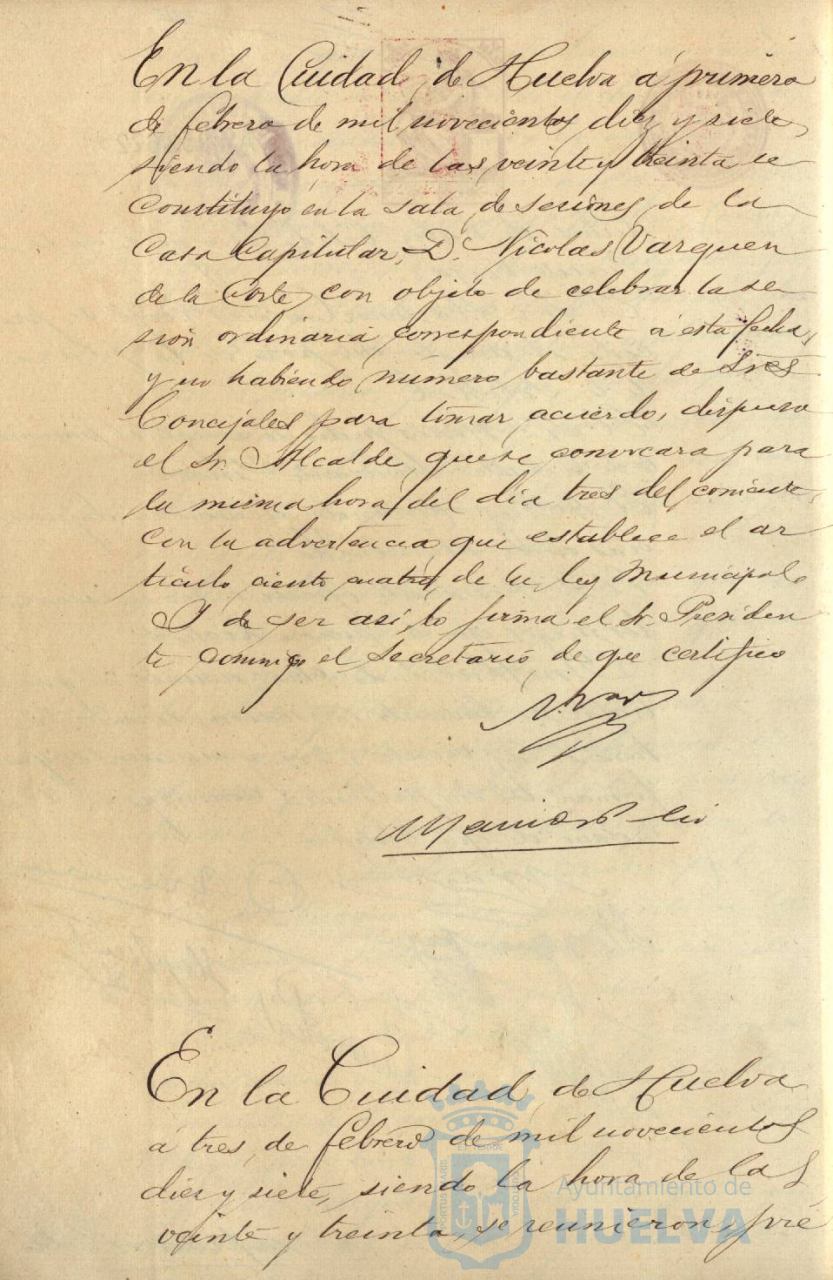 En la Ciudad de Huelva á primero
de febrero de mil novecientos diez y siete,
siendo la hora de las veinte y treinta se
constituyo en la sala de sesiones de la
Casa Capitular, D. Nicolas Vazquez
de la Corte, con objeto de celebrar la se
sión ordinaria correspondiente á esta fecha,
y no habiendo número bastante de Sres
Concejales para tomar acuerdo, dispuso
el Sr. Alcalde, que se convocara para
la misma hora del día tres del corriente,
con la advertencia que establece el ar
tículo ciento cuatro, de la ley Municipal.
Y de ser así, lo firma el Sr. Presiden
te conmigo el Secretario, de que certifico
En la Ciudad de Huelva
á tres de febrero de mil novecientos
diez y siete, siendo la hora de las
veinte y treinta, se reunieron, pré
Ayuntamiento de
HUELVA